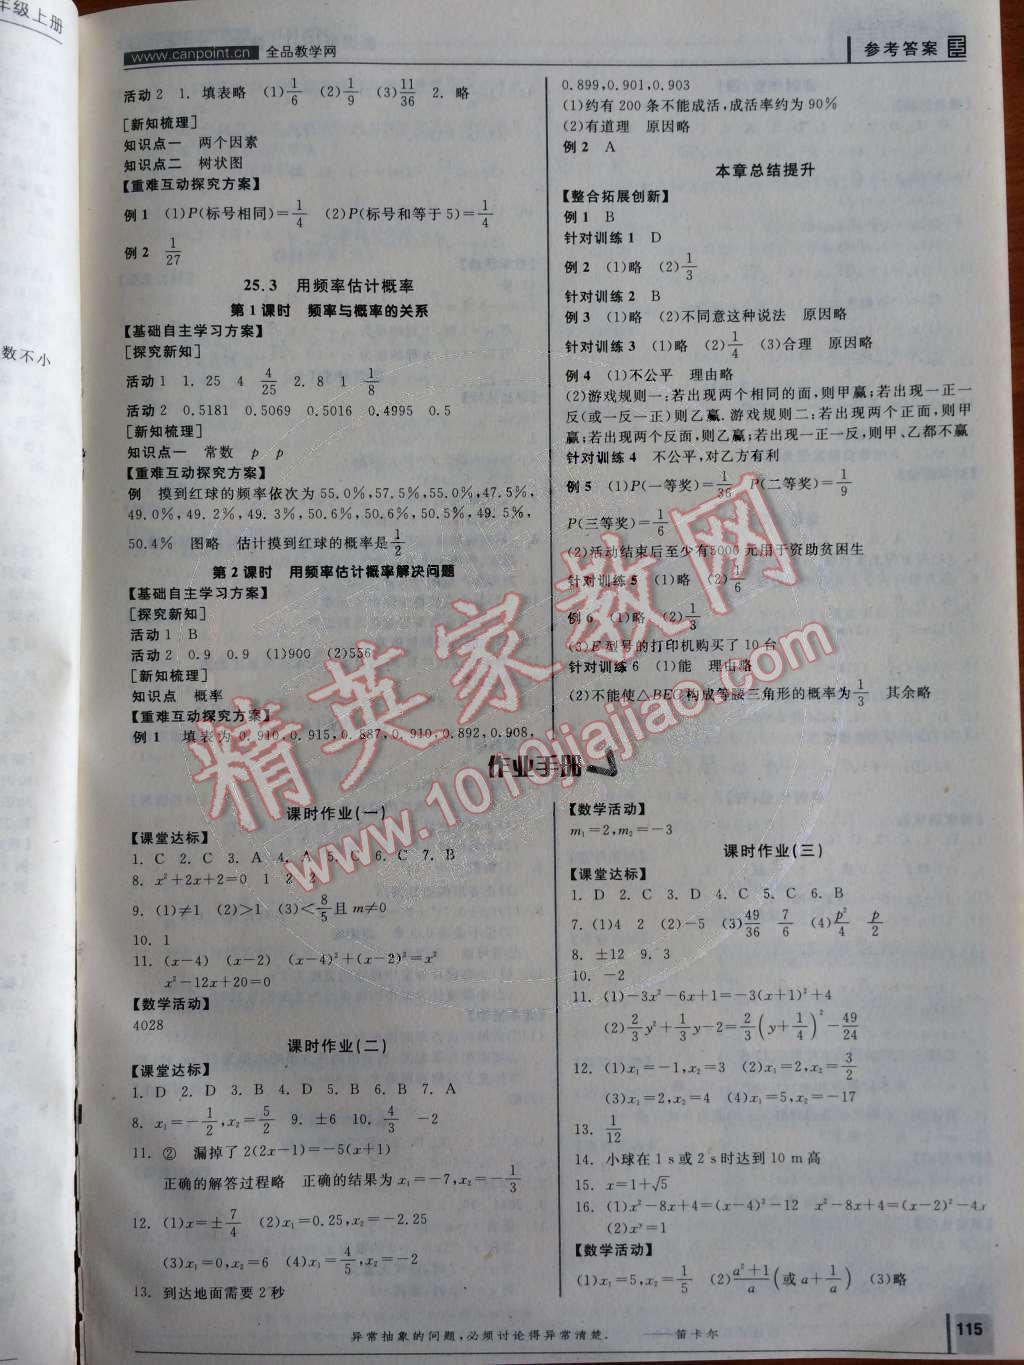 年级上册
数不小
www.canpoint.cn 全品教学网
参考答案
活动2 1. 填表略 (1)1/6 (2)1/9 (3)11/36 2. 略
[新知梳理]
知识点一 两个因素
知识点二 树状图
【重难互动探究方案】
例1 (1)P(标号相同)=1/4 (2)P(标号和等于5)=1/4
例2 1/27
25.3 用频率估计概率
第1课时 频率与概率的关系
【基础自主学习方案】
[探究新知]
活动1 1. 25 4 4/25 2. 8 1 1/8
活动2 0.5181 0.5069 0.5016 0.4995 0.5
[新知梳理]
知识点一 常数 p p
【重难互动探究方案】
例 摸到红球的频率依次为55.0%,57.5%,55.0%,47.5%,
49.0%,49.2%,49.3%,50.6%,50.6%,50.5%,49.5%,
50.4% 图略 估计摸到红球的概率是1/2
第2课时 用频率估计概率解决问题
【基础自主学习方案】
[探究新知]
活动1 B
活动2 0.9 0.9 (1)900 (2)556
[新知梳理]
知识点 概率
【重难互动探究方案】
例1 填表为0.910,0.915,0.887,0.910,0.892,0.908,
0.899,0.901,0.903
(1)约有200条不能成活,成活率约为90%
(2)有道理 原因略
例2 A
本章总结提升
【整合拓展创新】
例1 B
针对训练1 D
例2 (1)略 (2)1/3
针对训练2 B
例3 (1)略 (2)不同意这种说法 原因略
针对训练3 (1)略 (2)1/4 (3)合理 原因略
例4 (1)不公平 理由略
(2)游戏规则一:若出现两个相同的面,则甲赢;若出现一正一
反(或一反一正)则乙赢.游戏规则二:若出现两个正面,则甲
赢;若出现两个反面,则乙赢;若出现一正一反,则甲、乙都不赢
针对训练4 不公平,对乙方有利
例5 (1)P(一等奖)=1/36 P(二等奖)=1/9
P(三等奖)=1/6
(2)活动结束后至少有5000元用于资助贫困生
针对训练5 (1)略 (2)1/6
例6 (1)略 (2)1/3
(3)E型号的打印机购买了10台
针对训练6 (1)能 理由略
(2)不能使△BEC构成等腰三角形的概率为1/3 其余略
作业手册
课时作业(一)
【课堂达标】
1. C 2. C 3. A 4. A 5. C 6. C 7. B
8. x²+2x+2=0 1 2 2
9. (1)≠1 (2)>1 (3)<8/5且m≠0
10. 1
11. (x-4) (x-2) (x-4)²+(x-2)²=x²
x²-12x+20=0
【数学活动】
4028
课时作业(二)
【课堂达标】
1. D 2. D 3. B 4. D 5. B 6. B 7. A
8. x₁=-1/2,x₂=5/2 9. ±6 10. 4/3 -2
11. ② 漏掉了2(2x-1)=-5(x+1)
正确的解答过程略 正确的结果为x₁=-7,x₂=-1/3
12. (1)x=±7/4 (2)x₁=0.25,x₂=-2.25
(3)x₁=0,x₂=6 (4)x₁=4/5,x₂=-2
13. 到达地面需要2秒
【数学活动】
m₁=2,m₂=-3
课时作业(三)
【课堂达标】
1. D 2. C 3. D 4. C 5. C 6. B
7. (1)4 2 (2)-5 (3)49/36 7/6 (4)p²/4 p/2
8. ±12 9. 3
10. -2
11. (1)-3x²-6x+1=-3(x+1)²+4
(2)2/3y²+1/3y-2=2/3(y+1/4)²-49/24
12. (1)x₁=-1,x₂=3 (2)x₁=2,x₂=3/2
(3)x₁=2,x₂=4 (4)x₁=5,x₂=-17
13. 1/12
14. 小球在1 s或2 s时达到10 m高
15. x=1+√5
16. (1)x²-8x+4=(x-4)²-12 x²-8x+4=(x-2)²-4x
(2)xʸ=1
【数学活动】
(1)x₁=5,x₂=1/5 (2)(a²+1)/a(或a+1/a) (3)略
异常抽象的问题,必须讨论得异常清楚. ——笛卡尔
115
精英家教网
www.1010jiajiao.com